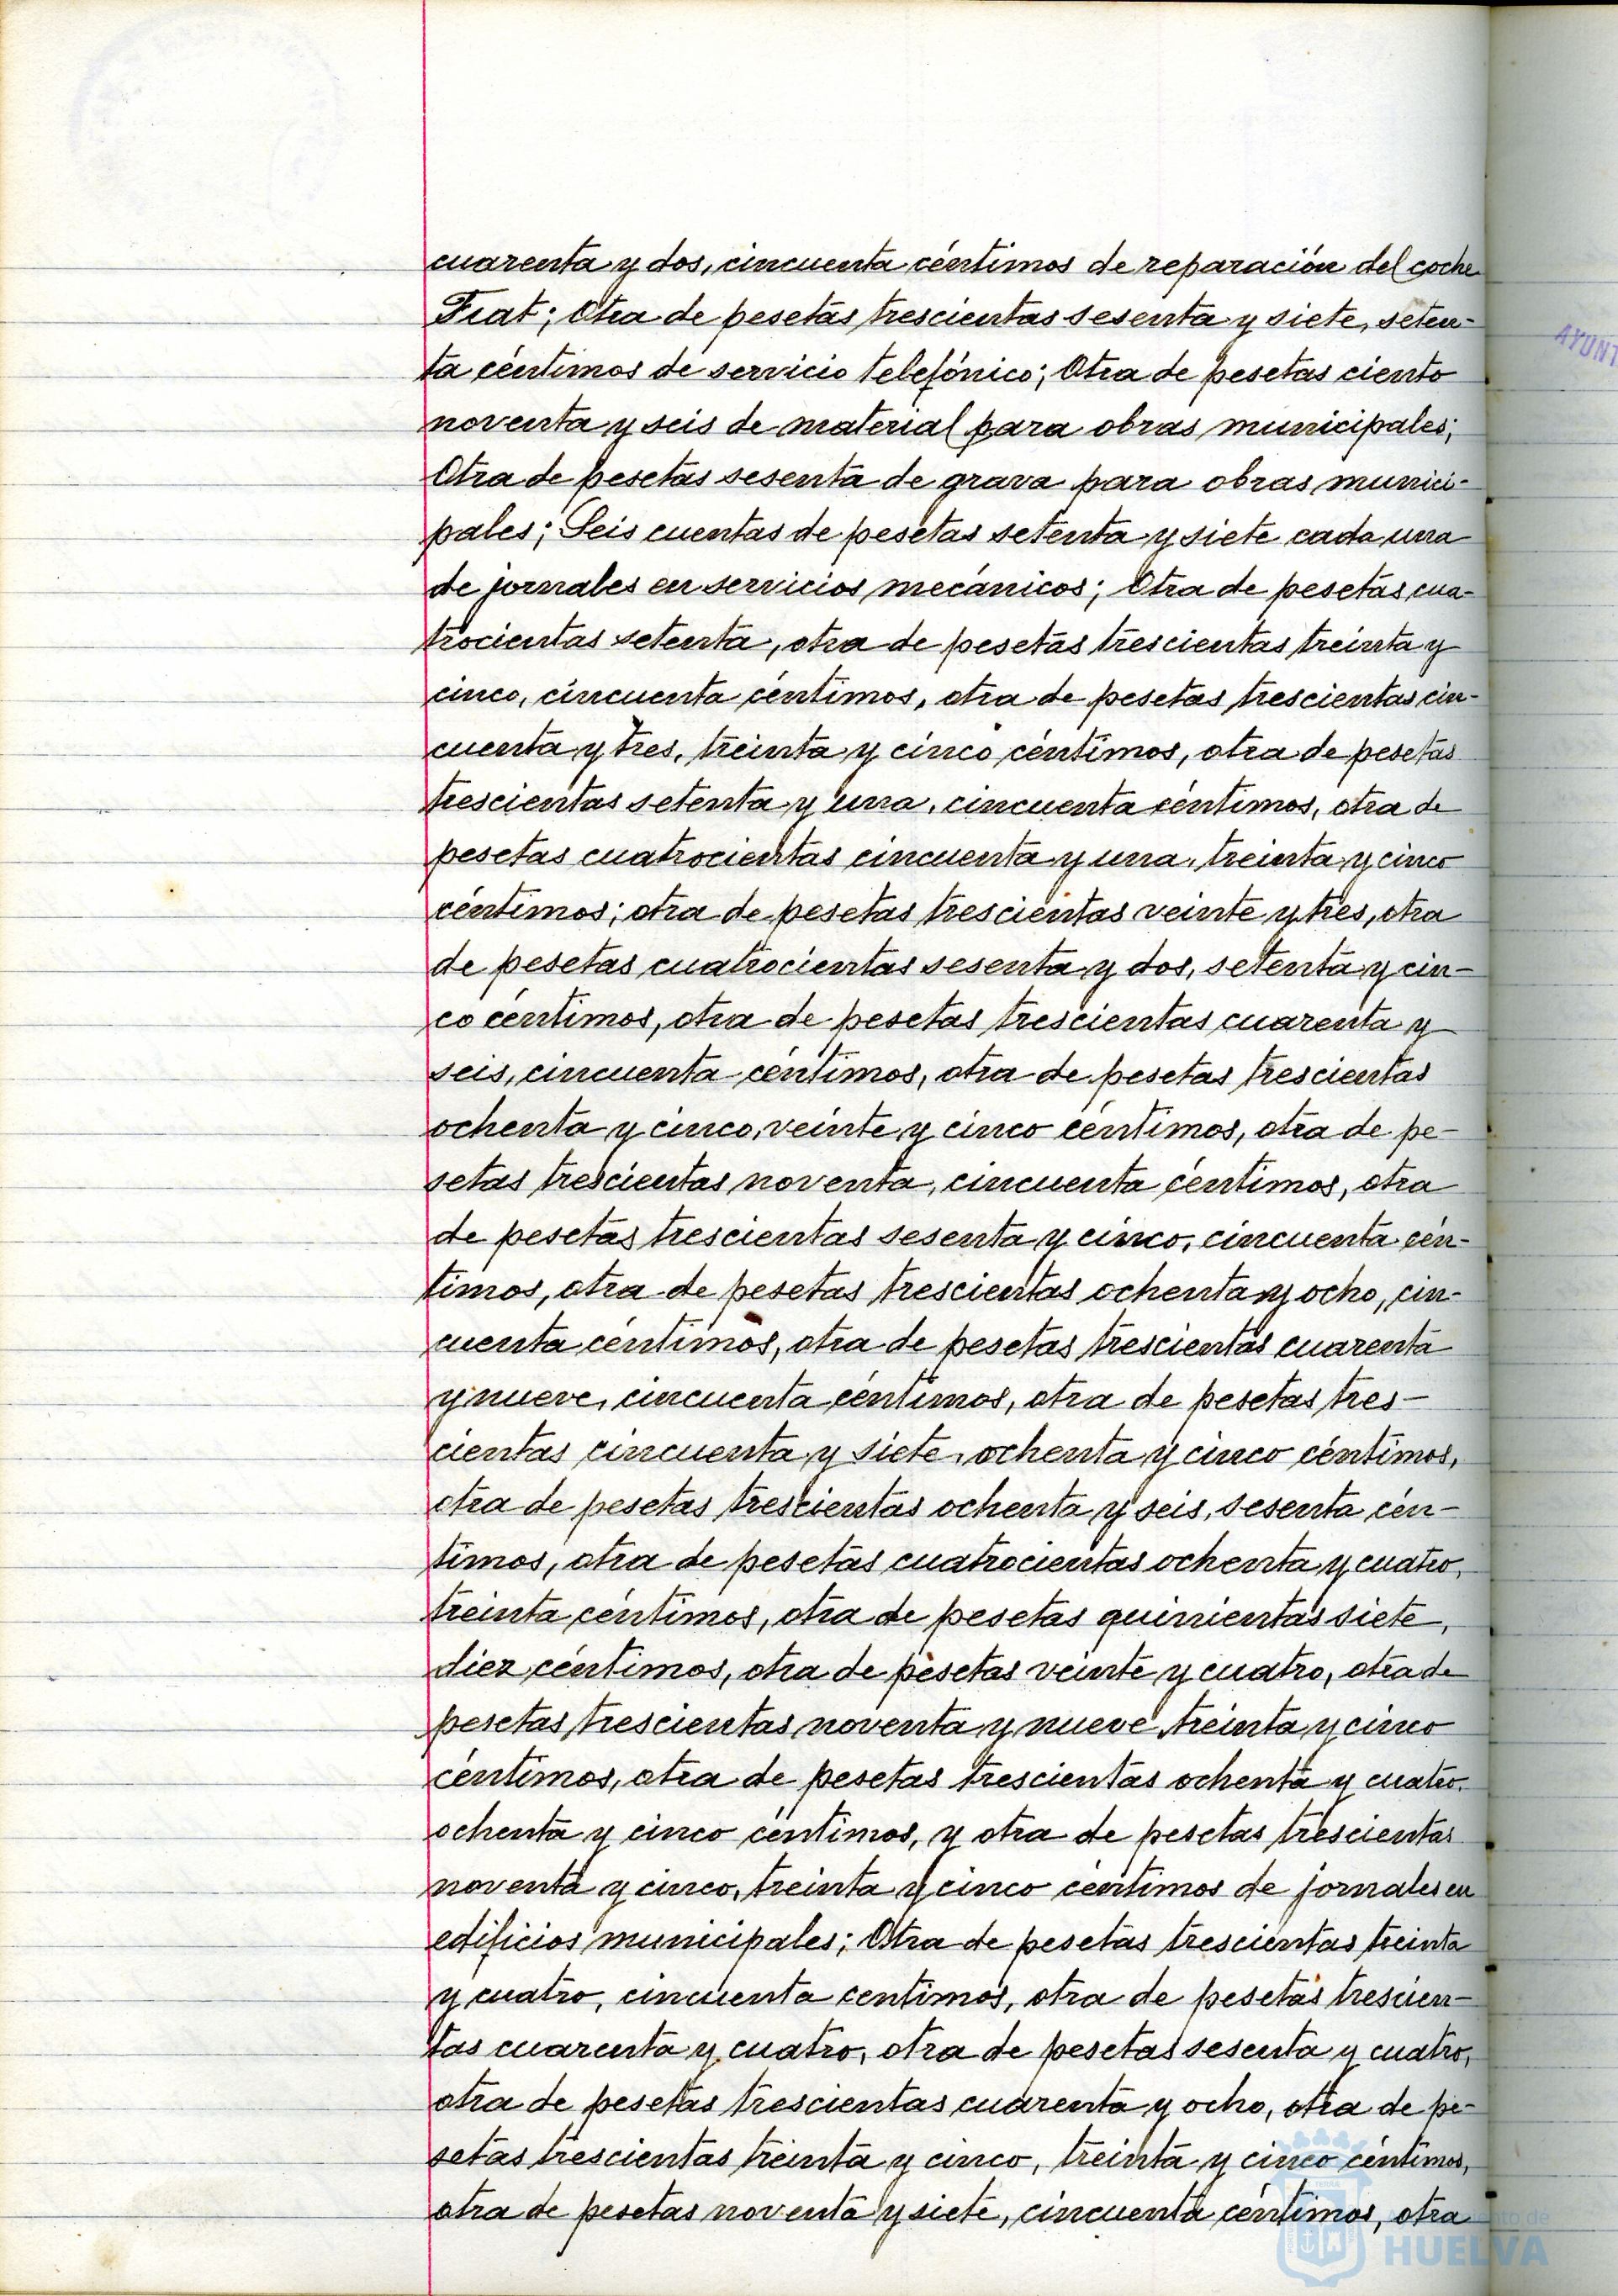 cuarenta y dos, cincuenta céntimos de reparación del coche
Fiat; Otra de pesetas trescientas sesenta y siete, seten-
ta céntimos de servicio telefónico; Otra de pesetas ciento
noventa y seis de material para obras municipales;
Otra de pesetas sesenta de grava para obras munici-
pales; Seis cuentas de pesetas setenta y siete cada una
de jornales en servicios mecánicos; Otra de pesetas cua-
trocientas setenta, otra de pesetas trescientas treinta y
cinco, cincuenta céntimos, otra de pesetas trescientas cin-
cuenta y tres, treinta y cinco céntimos, otra de pesetas
trescientas setenta y una, cincuenta céntimos, otra de
pesetas cuatrocientas cincuenta y una, treinta y cinco
céntimos; otra de pesetas trescientas veinte y tres, otra
de pesetas cuatrocientas sesenta y dos, setenta y cin-
co céntimos, otra de pesetas trescientas cuarenta y
seis, cincuenta céntimos, otra de pesetas trescientas
ochenta y cinco, veinte y cinco céntimos, otra de pe-
setas trescientas noventa, cincuenta céntimos, otra
de pesetas trescientas sesenta y cinco, cincuenta cén-
timos, otra de pesetas trescientas ochenta y ocho, cin-
cuenta céntimos, otra de pesetas trescientas cuarenta
y nueve, cincuenta céntimos, otra de pesetas tres-
cientas cincuenta y siete, ochenta y cinco céntimos,
otra de pesetas trescientas ochenta y seis, sesenta cén-
timos, otra de pesetas cuatrocientas ochenta y cuatro,
treinta céntimos, otra de pesetas quinientas siete,
diez céntimos, otra de pesetas veinte y cuatro, otra de
pesetas trescientas noventa y nueve, treinta y cinco
céntimos, otra de pesetas trescientas ochenta y cuatro,
ochenta y cinco céntimos, y otra de pesetas trescientas
noventa y cinco, treinta y cinco céntimos de jornales en
edificios municipales; Otra de pesetas trescientas treinta
y cuatro, cincuenta centimos, otra de pesetas trescien-
tas cuarenta y cuatro, otra de pesetas sesenta y cuatro,
otra de pesetas trescientas cuarenta y ocho, otra de pe-
setas trescientas treinta y cinco, treinta y cinco céntimos,
otra de pesetas noventa y siete, cincuenta céntimos, otra
AYUNT
HUELVA